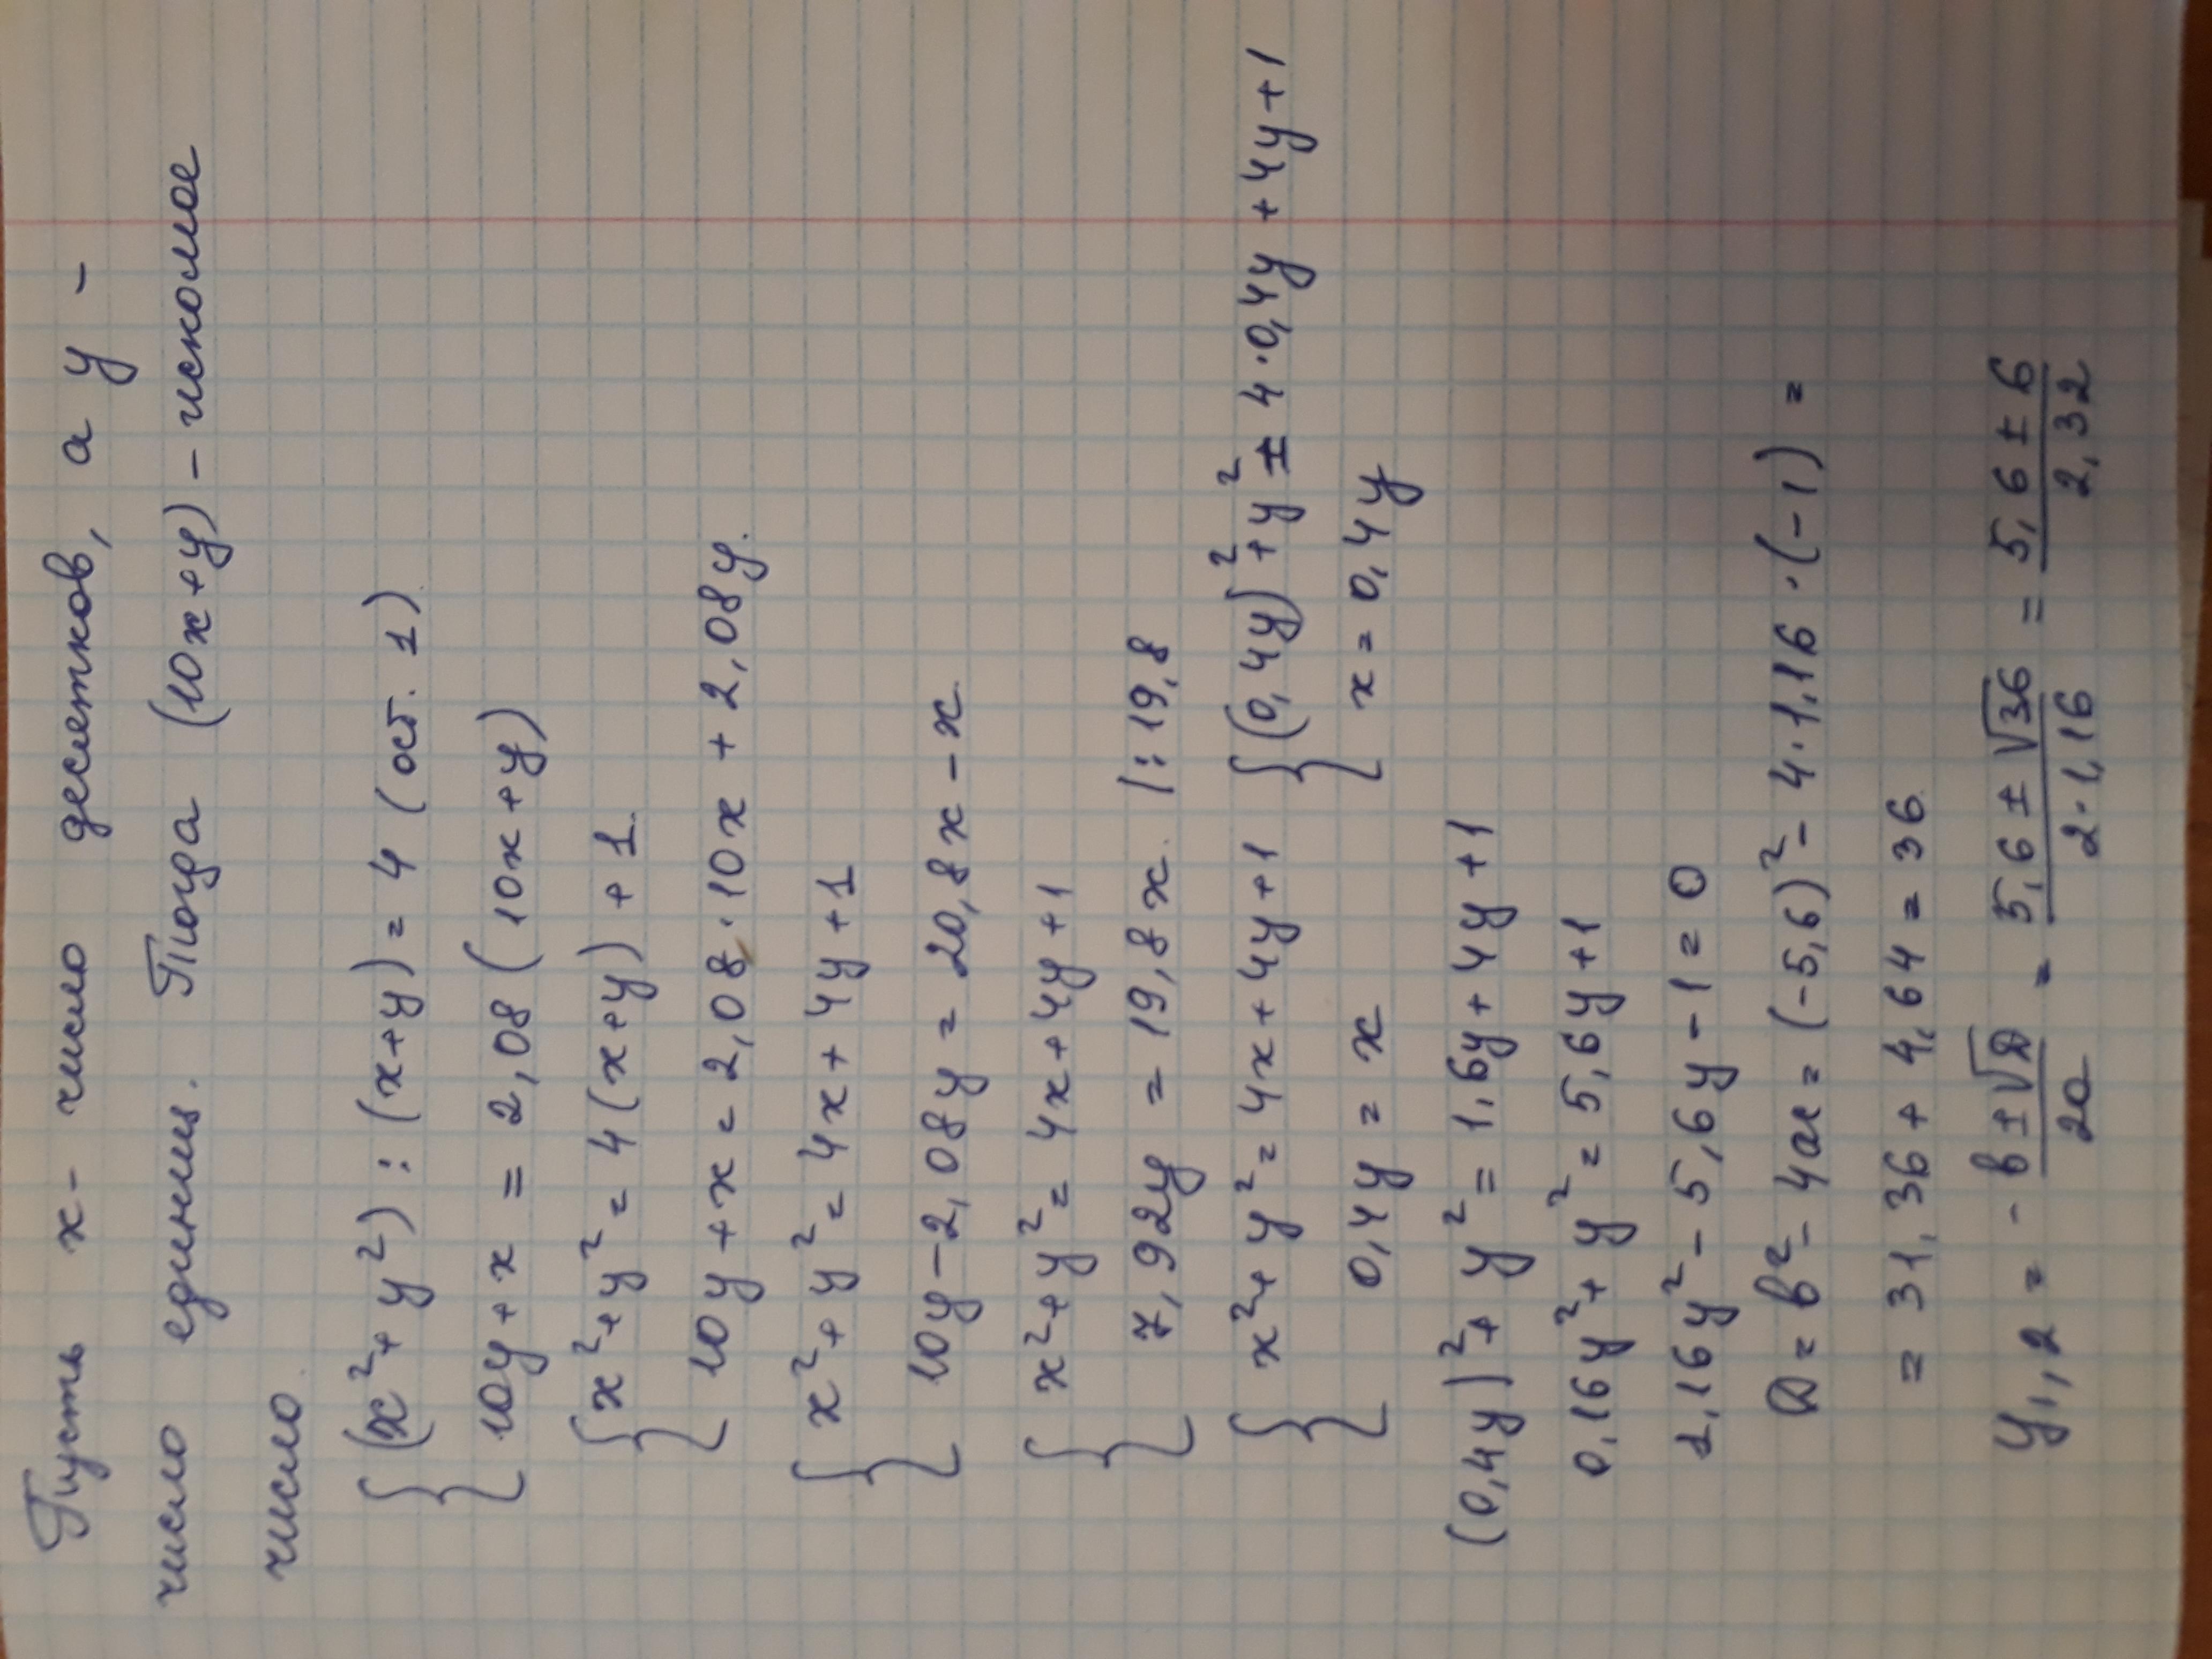 Пусть x - число десятков, а y -
число единиц. Тогда (10x+y) - искомое
число.
{(x²+y²):(x+y)=4 (ост. 1)
10y+x = 2,08 (10x+y)
{x²+y²=4(x+y)+1.
10y+x=2,08·10x+2,08y.
{x²+y²=4x+4y+1
10y-2,08y=20,8x-x
{x²+y²=4x+4y+1
7,92y = 19,8x. |:19,8
{x²+y²=4x+4y+1 {(0,4y)²+y²=4·0,4y+4y+1
0,4y = x x=0,4y
(0,4y)²+y²=1,6y+4y+1
0,16y²+y²=5,6y+1
1,16y²-5,6y-1=0
D=b²-4ac=(-5,6)²-4·1,16·(-1)=
=31,36+4,64=36
y1,2=-b±√D/2a=5,6±√36/2·1,16=5,6±6/2,32